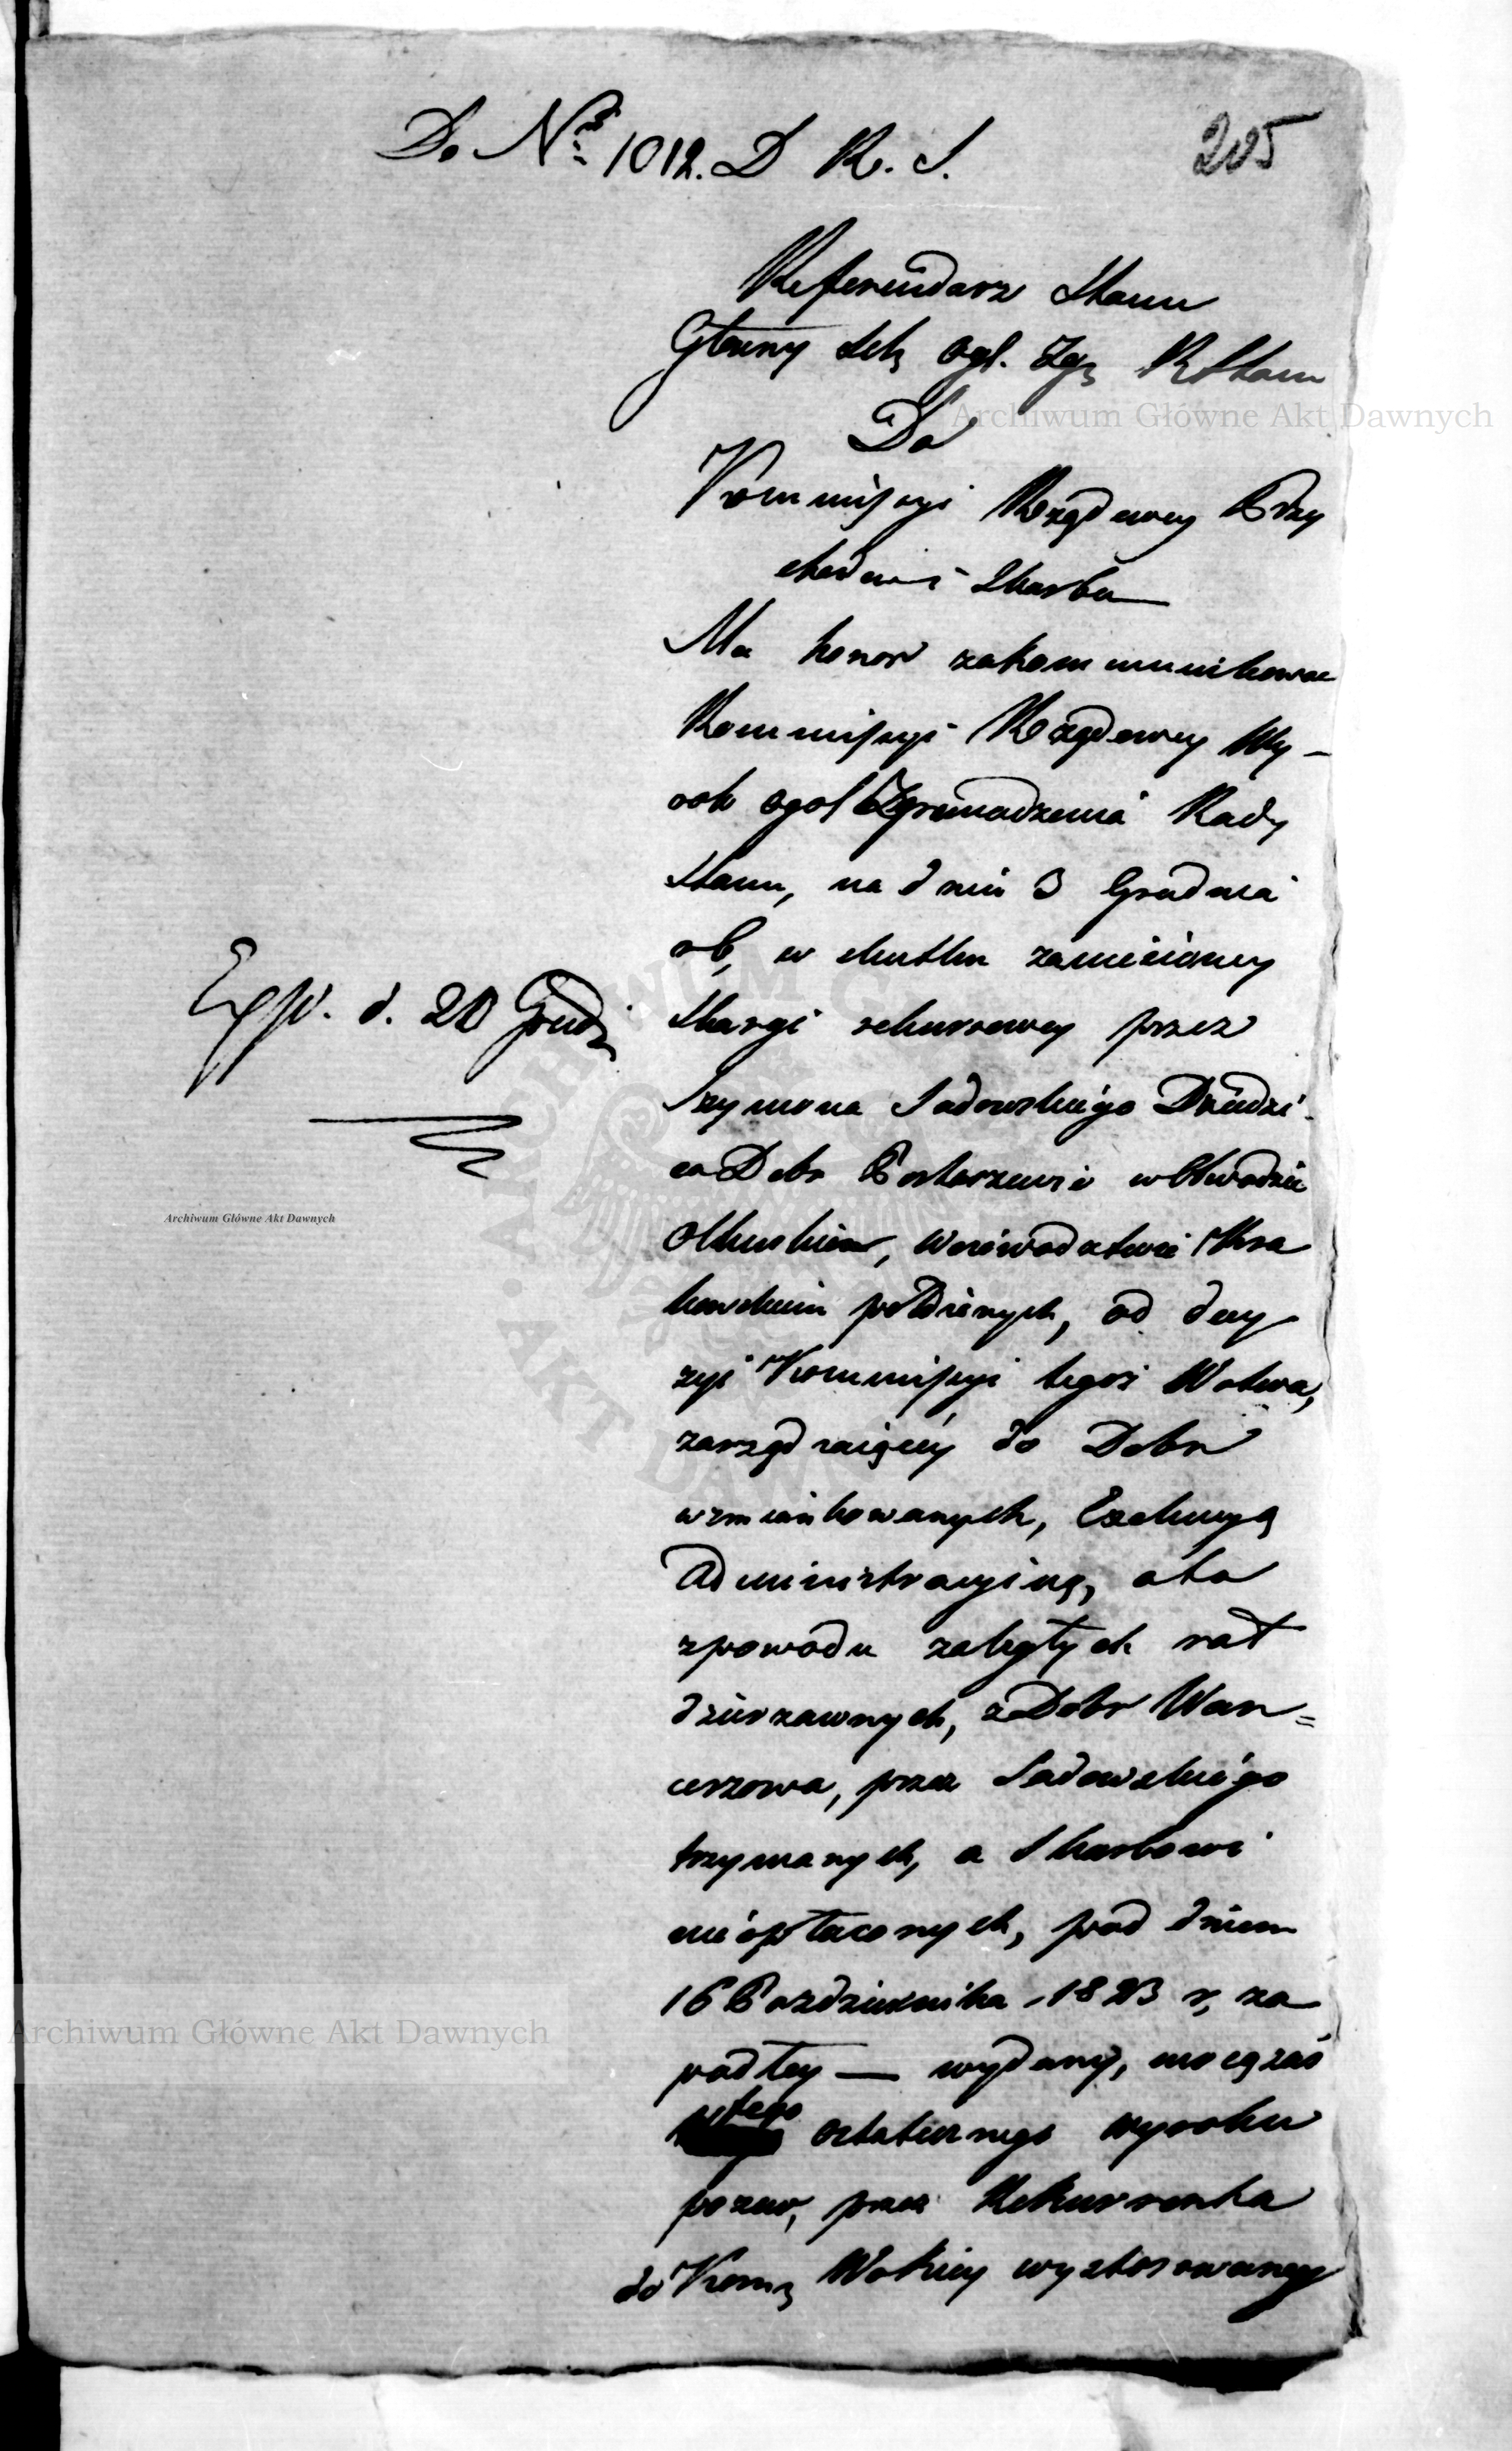 Do Nru 1012. D R. S.
205
Referendarz Stanu
Główny Sek. Ogl. Zgr. R Stanu
Do
Kommissyi Rządowey Przy
chodów i Skarbu
Ma honor zakommunikować
Kommissyi Rządowey Wy-
rok ogol Zgromadzenia Rady
Stanu, na dniu 3 Grudnia
rb, w skutku zaniesioney
Exp. d. 20 Grud.
Skargi rekursowey przez
Szymona Sadowskiego Dziedzi-
ca Dobr w Obwodzie
Olkuskim, Woiewodztwie Kra
kowskim położonych, od decy
zyi Kommissyi tegoż Wotwa,
zarządzaiącey do Dobr
wzmiankowanych, Exekucyą
Administracyiną, a to
z powodu zaległych rat
dzierżawnych, z Dobr Wan=
cerzowa, przez Sadowskiego
trzymanych, a Skarbowi
nieopłaconych, pod dniem
16 Pazdziernika 1823 r, za
padłey — wydany, mocą zaś
tego ostatecznego wyroku
pozew, przez Rekurrenta
do Komm. Wotkiey wystosowany
Archiwum Główne Akt Dawnych